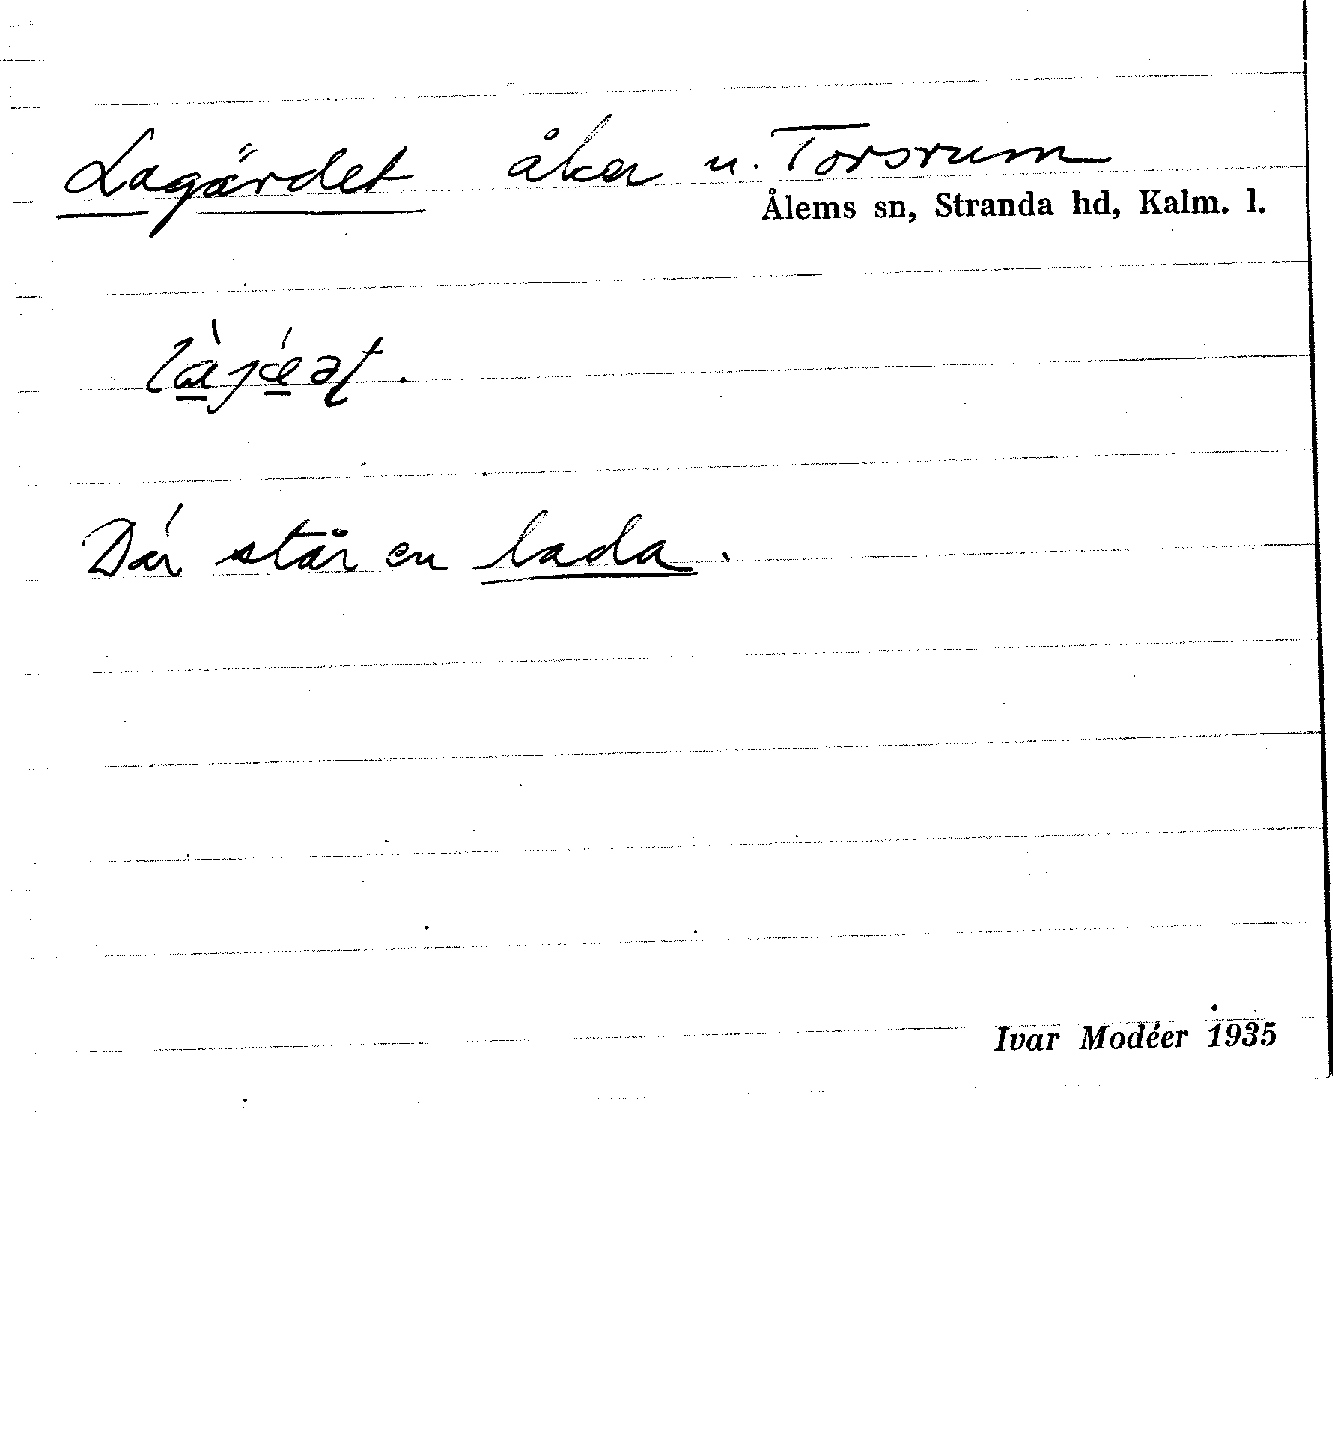 Lagärdet åker u. Torsrum
Ålems sn, Stranda hd, Kalm. l.
là̱jǽ̱ət.
Där står en lada.
Ivar Modéer 1935